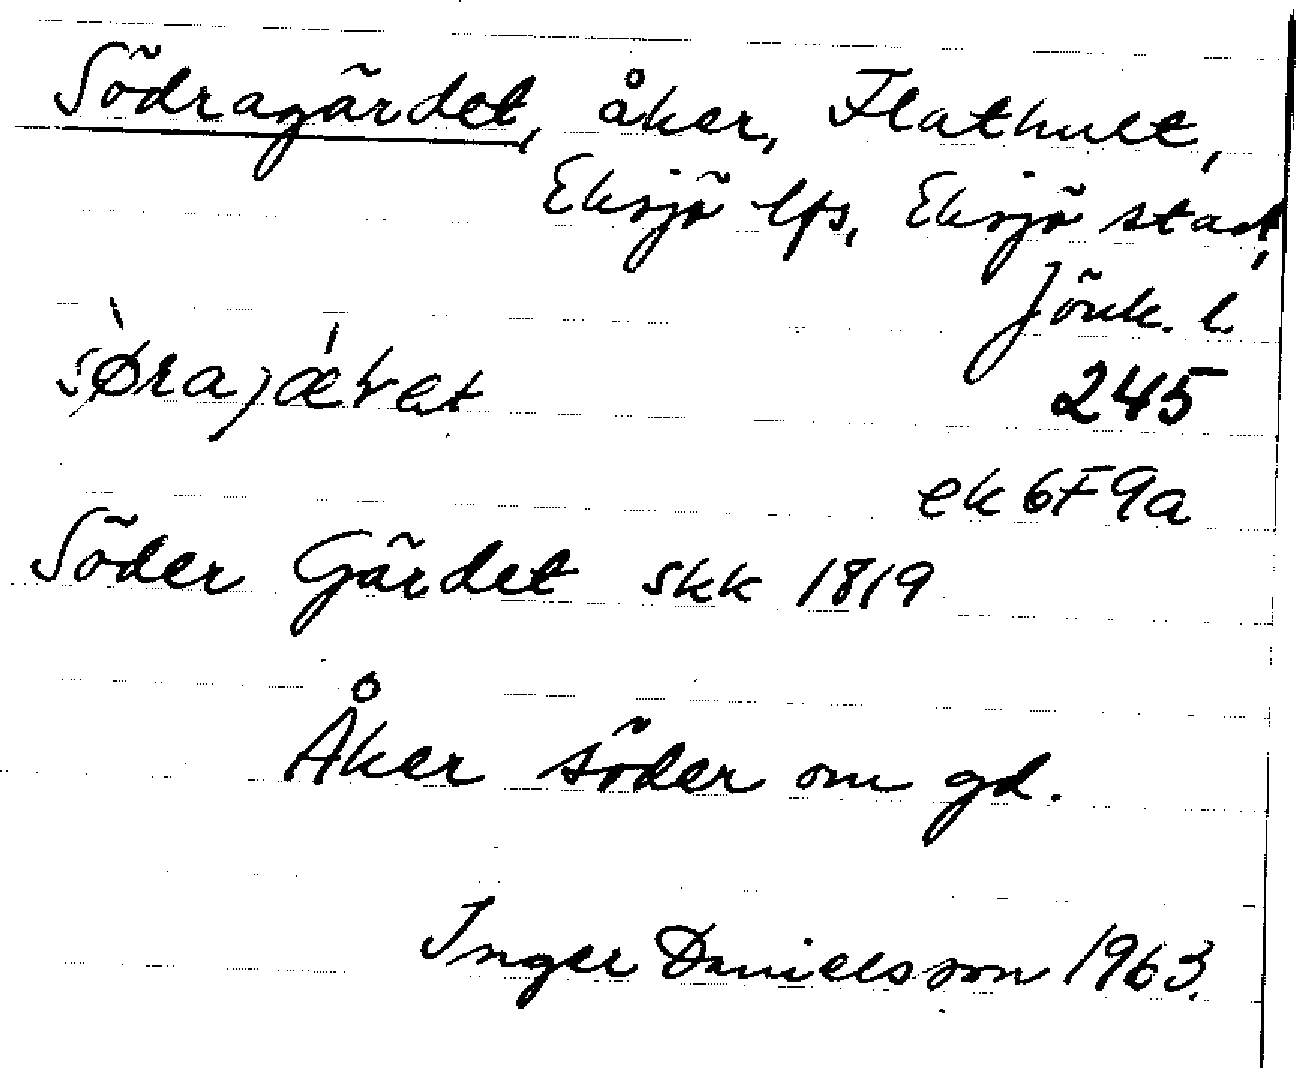 Södragärdet, åker, Flathult,
Eksjö lfs, Eksjö stad,
Jönk. l.
sø̀rajǽrat
245
ek 6F9a
Söder Gärdet skk 1819
Åker söder om gd.
Inger Danielsson 1963.